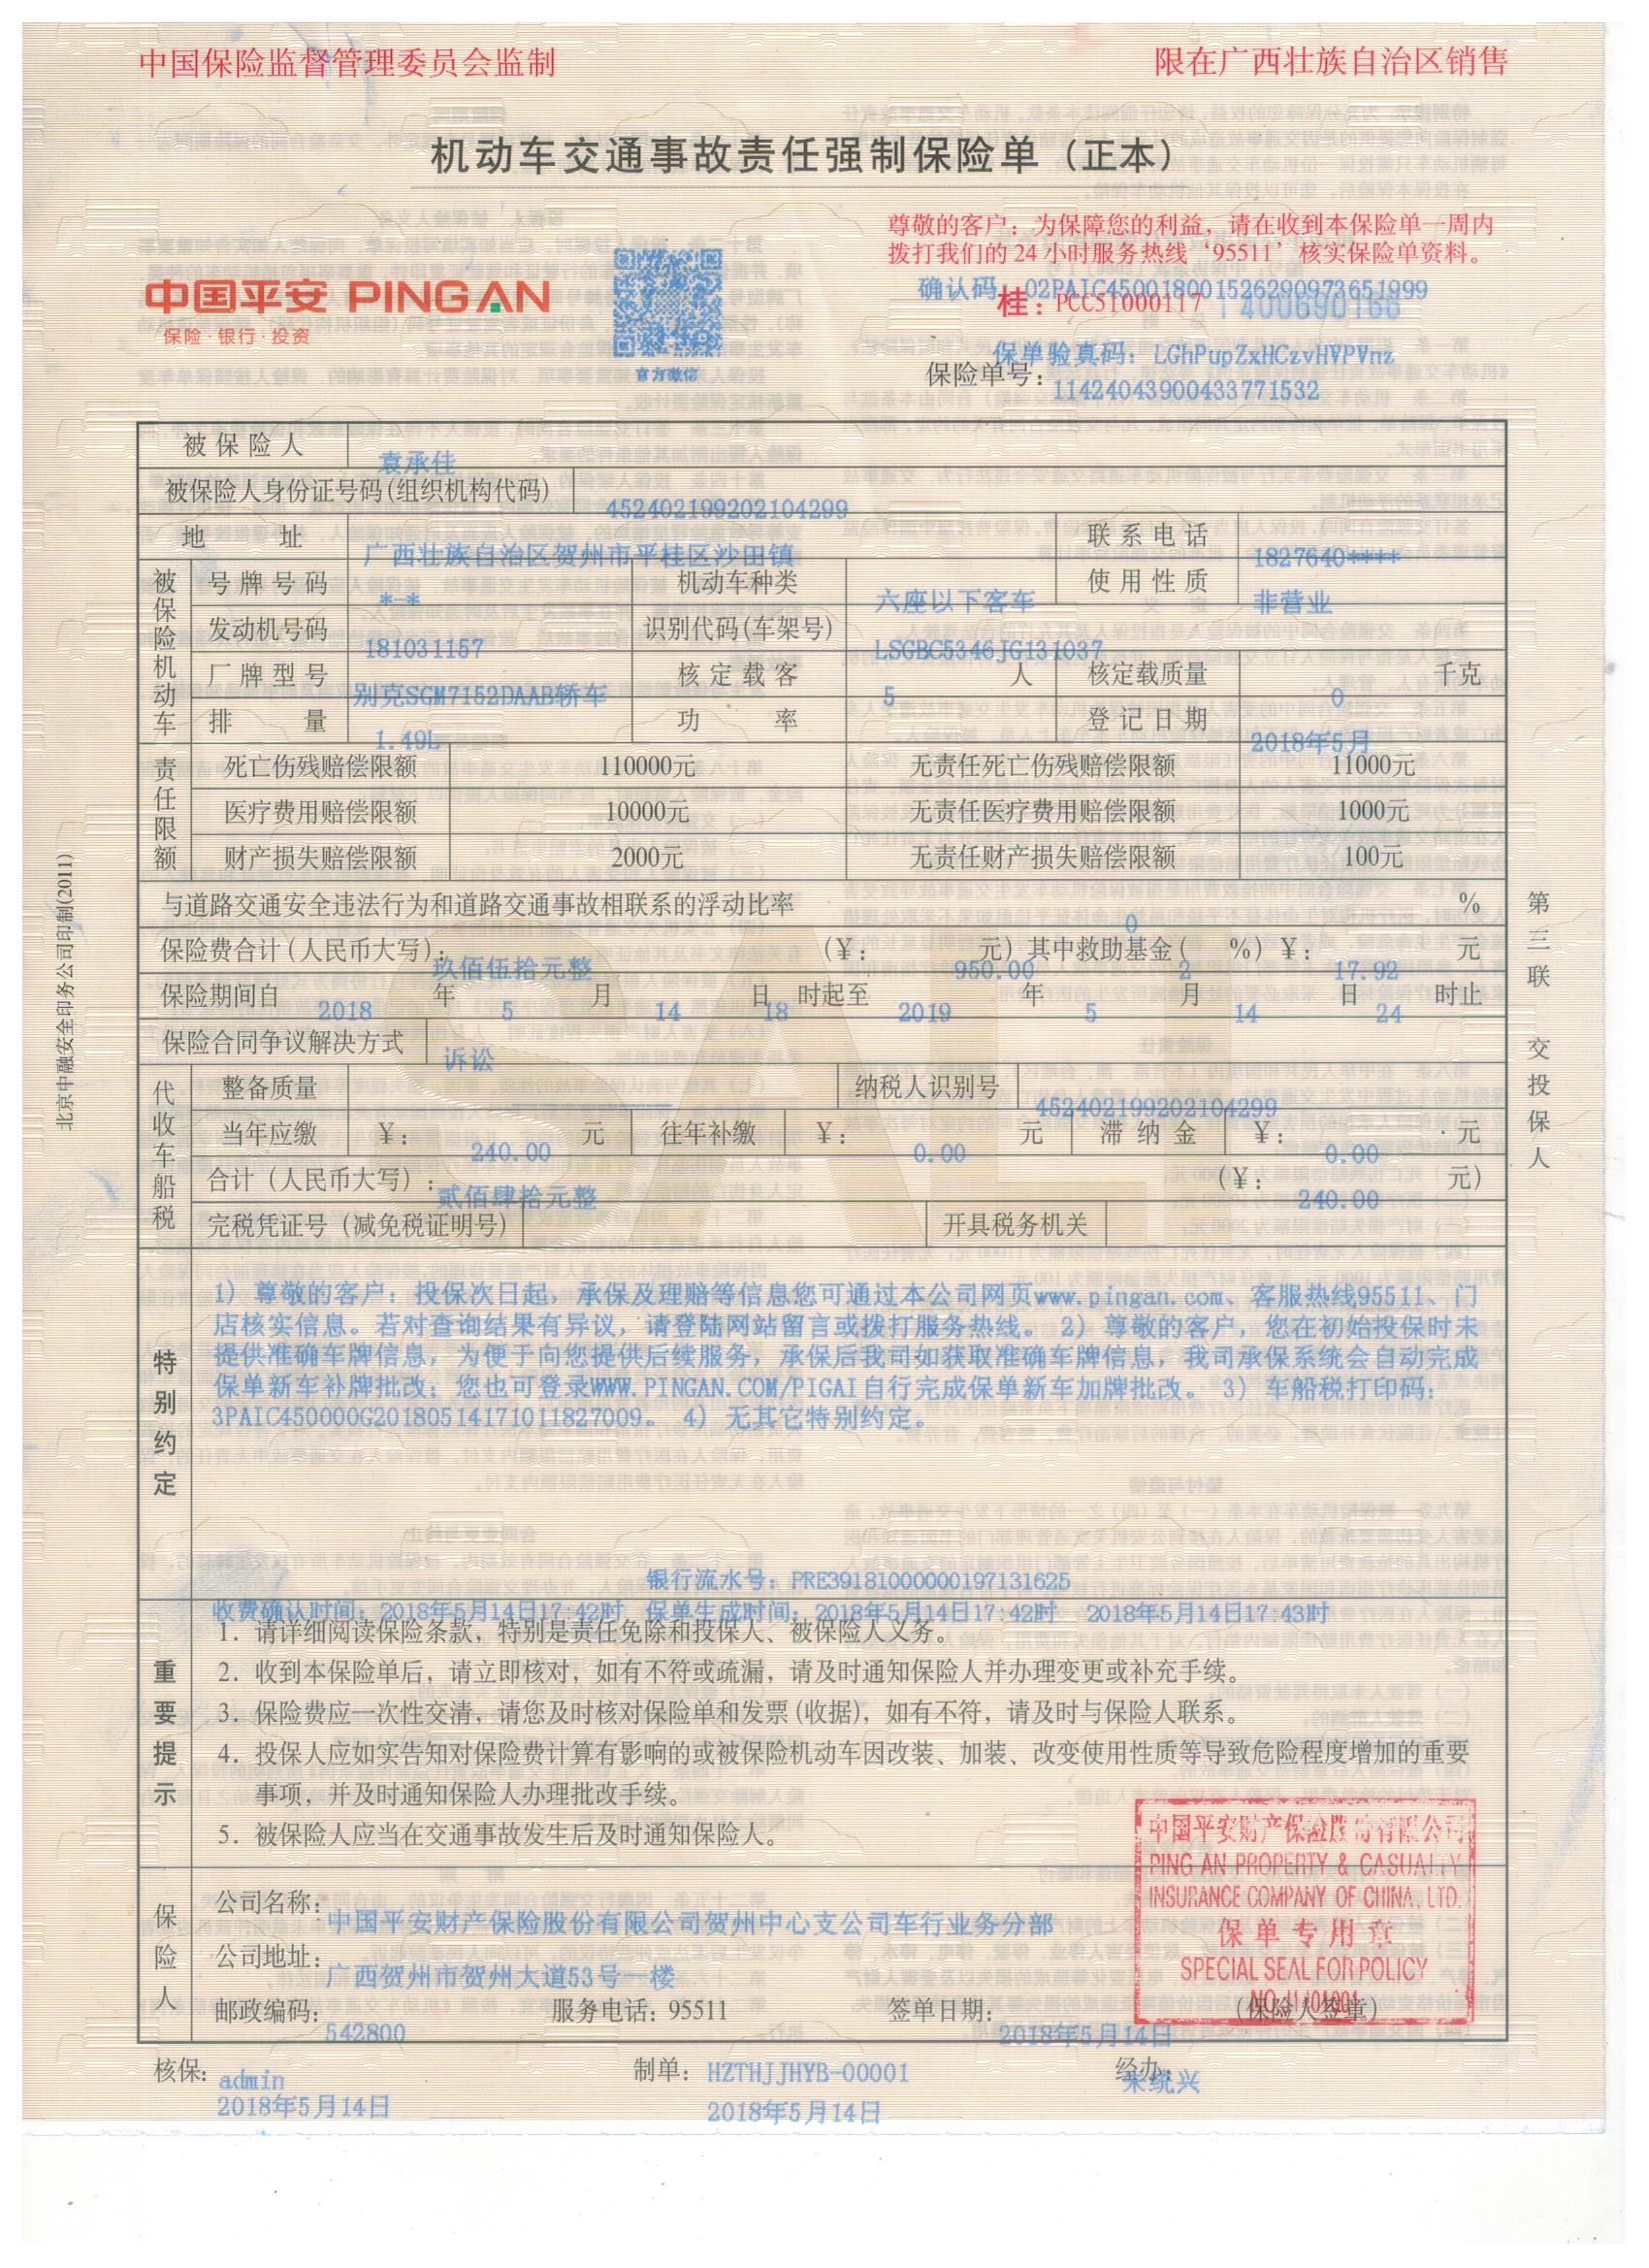 中国保险监督管理委员会监制
限在广西壮族自治区销售
机动车交通事故责任强制保险单（正本）
尊敬的客户：为保障您的利益，请在收到本保险单一周内
拨打我们的 24 小时服务热线‘95511’核实保险单资料。
中国平安 PING AN
保险·银行·投资
官方微信
确认码：02PAIC450018001526290973651999
桂：PCC51000117 1400690168
保单验真码：LGhPupZxHCzvHVPVnz
保险单号：11424043900433771532
被保险人 袁承佳
被保险人身份证号码(组织机构代码) 452402199202104299
地 址 广西壮族自治区贺州市平桂区沙田镇 联系电话 1827640****
被保险机动车
号牌号码 *-* 机动车种类 六座以下客车 使用性质 非营业
发动机号码 181031157 识别代码(车架号) LSGBC5346JG131037
厂牌型号 别克SGM7152DAAB轿车 核定载客 5 人 核定载质量 0 千克
排 量 1.49L 功 率 登记日期 2018年5月
责任限额
死亡伤残赔偿限额 110000元 无责任死亡伤残赔偿限额 11000元
医疗费用赔偿限额 10000元 无责任医疗费用赔偿限额 1000元
财产损失赔偿限额 2000元 无责任财产损失赔偿限额 100元
与道路交通安全违法行为和道路交通事故相联系的浮动比率 0 %
保险费合计(人民币大写)：玖佰伍拾元整 (￥：950.00 元) 其中救助基金( 2 %)￥：17.92 元
保险期间自 2018 年 5 月 14 日 18 时起至 2019 年 5 月 14 日 24 时止
保险合同争议解决方式 诉讼
代收车船税
整备质量 纳税人识别号 452402199202104299
当年应缴 ￥：240.00 元 往年补缴 ￥：0.00 元 滞纳金 ￥：0.00 元
合计（人民币大写）：贰佰肆拾元整 (￥：240.00 元)
完税凭证号（减免税证明号） 开具税务机关
特别约定
1）尊敬的客户：投保次日起，承保及理赔等信息您可通过本公司网页www.pingan.com、客服热线95511、门
店核实信息。若对查询结果有异议，请登陆网站留言或拨打服务热线。 2）尊敬的客户，您在初始投保时未
提供准确车牌信息，为便于向您提供后续服务，承保后我司如获取准确车牌信息，我司承保系统会自动完成
保单新车补牌批改；您也可登录WWW.PINGAN.COM/PIGAI自行完成保单新车加牌批改。 3）车船税打印码：
3PAIC450000G20180514171011827009。 4）无其它特别约定。
银行流水号：PRE39181000000197131625
收费确认时间：2018年5月14日17:42时 保单生成时间：2018年5月14日17:42时 2018年5月14日17:43时
重要提示
1．请详细阅读保险条款，特别是责任免除和投保人、被保险人义务。
2．收到本保险单后，请立即核对，如有不符或疏漏，请及时通知保险人并办理变更或补充手续。
3．保险费应一次性交清，请您及时核对保险单和发票(收据)，如有不符，请及时与保险人联系。
4．投保人应如实告知对保险费计算有影响的或被保险机动车因改装、加装、改变使用性质等导致危险程度增加的重要
事项，并及时通知保险人办理批改手续。
5．被保险人应当在交通事故发生后及时通知保险人。
保险人
公司名称：中国平安财产保险股份有限公司贺州中心支公司车行业务分部
公司地址：广西贺州市贺州大道53号一楼
邮政编码：542800 服务电话：95511 签单日期：2018年5月14日 (保险人签章)
中国平安财产保险股份有限公司
PING AN PROPERTY & CASUALTY
INSURANCE COMPANY OF CHINA, LTD.
保单专用章
SPECIAL SEAL FOR POLICY
核保：admin 制单：HZTHJJHYB-00001 经办：朱统兴
2018年5月14日 2018年5月14日
北京中融安全印务公司印制(2011)
第三联 交投保人